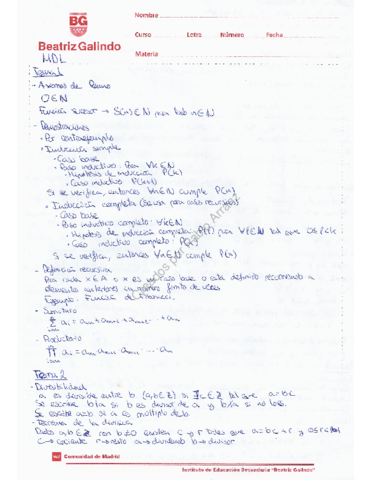 BG
Beatriz Galindo
Nombre
Curso Letra Número Fecha
Materia
MDL
Tema 1
- Axiomas de Peano
0∈N
Función sucesor → S(n)∈N para todo n∈N
- Demostraciones
• Por contraejemplo
• Inducción simple
• Caso base
• Paso inductivo: Para ∀k∈N
• Hipótesis de inducción P(k)
• Caso inductivo P(k+1)
Si se verifica, entonces ∀n∈N cumple P(n)
• Inducción completa (se usa para casos recursivos)
• Caso base
• Paso inductivo completo: ∀k∈N
• Hipótesis de inducción completa: P(i) para ∀i∈N tal que 0≤i<k
• Caso inductivo completo: P(k)
Si se verifica, entonces ∀n∈N cumple P(n)
- Definición recursiva
Para cada x∈A o x es un caso base o está definido recurriendo a
elementos anteriores un número finito de veces
Ejemplo: Función de Fibonacci.
- Sumatorio
- Productorio
Tema 2
- Divisibilidad
a es divisible entre b (a,b∈Z) si ∃c∈Z tal que a=b·c
Se escribe b|a si b es divisor de a y b∤a si no lo es.
- Teorema de la división
Dados a,b∈Z con b≠0 existen c y r tales que a=b·c+r y 0≤r<|b|
c→cociente r→resto a→dividendo b→divisor
Comunidad de Madrid
Instituto de Educación Secundaria "Beatriz Galindo"